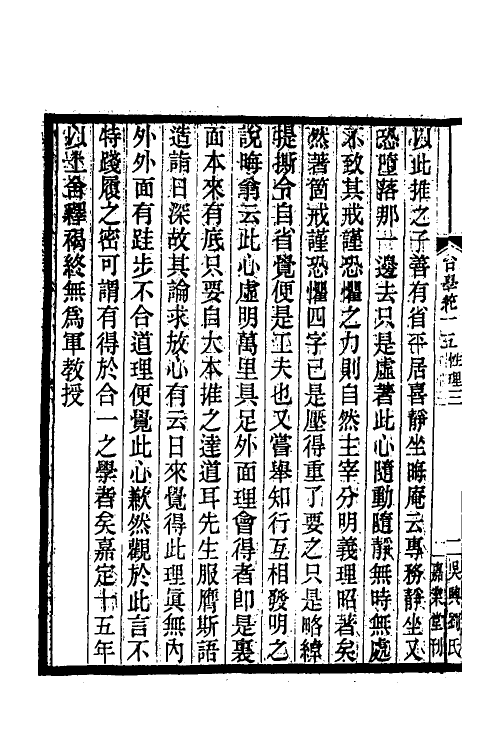 台學統 一五 性理三
一 吳興劉氏
嘉業堂刊
以此推之子善有省平居喜靜坐晦庵云專務靜坐又
恐墮落那一邊去只是虛著此心隨動隨靜無時無處
不致其戒謹恐懼之力則自然主宰分明義理昭著矣
然著箇戒謹恐懼四字已是壓得重了要之只是略綽
提撕令自省覺便是工夫也又嘗舉知行互相發明之
說晦翁云此心虛明萬里具足外面理會得者卽是裏
面本來有底只要自大本推之達道耳先生服膺斯語
造詣日深故其論求放心有云日來覺得此理眞無內
外外面有跬步不合道理便覺此心歉然觀於此言不
特踐履之密可謂有得於合一之學者矣嘉定十五年
以上舍釋褐終無爲軍教授